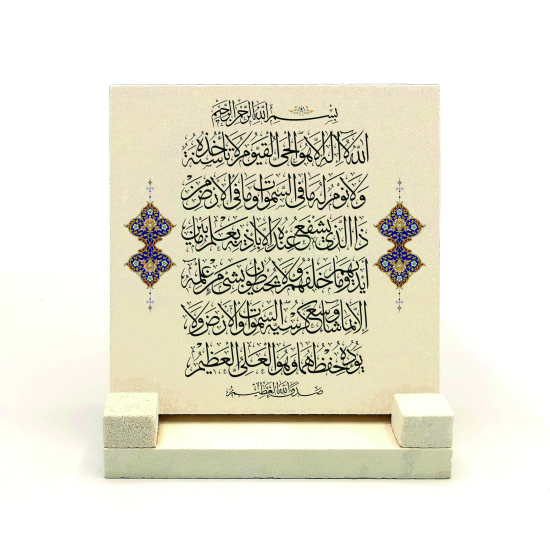 بِسْمِ اللهِ الرَّحْمٰنِ الرَّحِيمِ
اللهُ لَا إِلٰهَ إِلَّا هُوَ الْحَيُّ الْقَيُّومُ لَا تَأْخُذُهُ سِنَةٌ
وَلَا نَوْمٌ لَهُ مَا فِي السَّمٰوَاتِ وَمَا فِي الْأَرْضِ مَنْ
ذَا الَّذِي يَشْفَعُ عِنْدَهُ إِلَّا بِإِذْنِهِ يَعْلَمُ مَا بَيْنَ
أَيْدِيهِمْ وَمَا خَلْفَهُمْ وَلَا يُحِيطُونَ بِشَيْءٍ مِنْ عِلْمِهِ
إِلَّا بِمَا شَاءَ وَسِعَ كُرْسِيُّهُ السَّمٰوَاتِ وَالْأَرْضَ وَلَا
يَئُودُهُ حِفْظُهُمَا وَهُوَ الْعَلِيُّ الْعَظِيمُ
صَدَقَ اللهُ الْعَظِيمُ